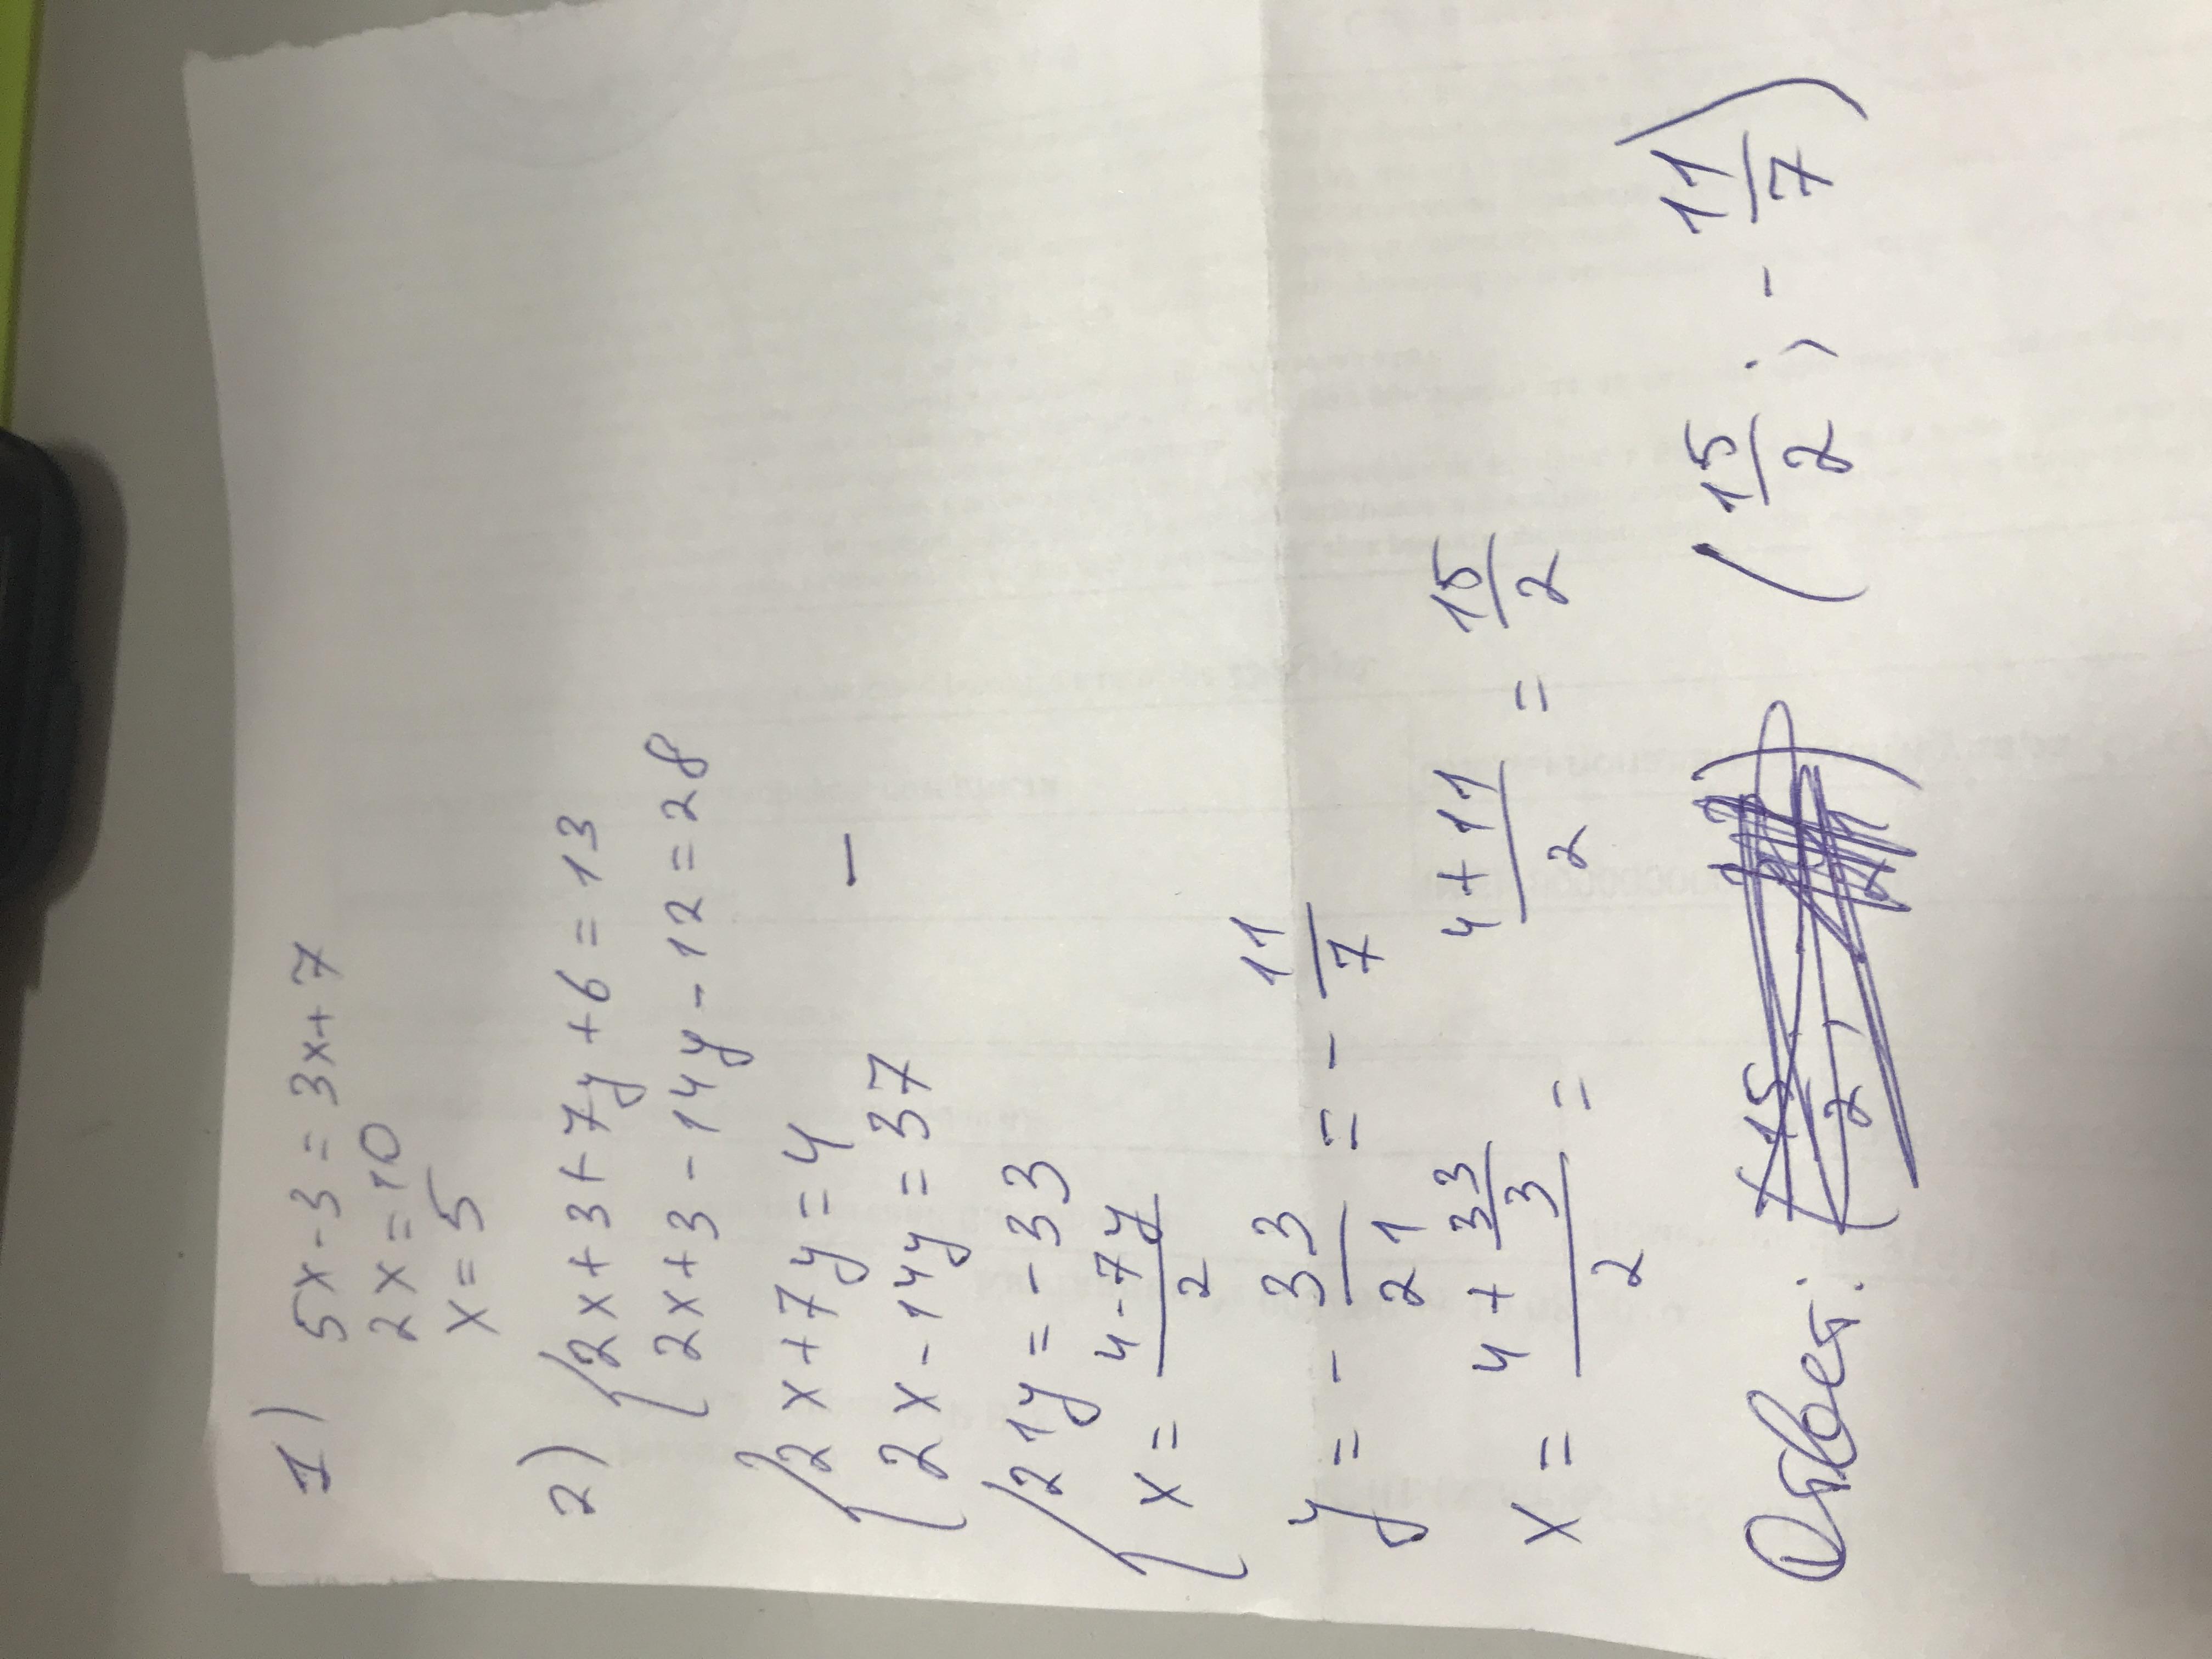 1) 5x-3=3x+7
2x=10
x=5
2) {2x+3+7y+6=13
2x+3-14y-12=28
{2x+7y=4 —
2x-14y=37
{21y=-33
x= (4-7y)/2
y= - 33/21 = - 11/7
x= (4+33/3)/2 = (4+11)/2 = 15/2
Ответ: (15/2; - 11/7)